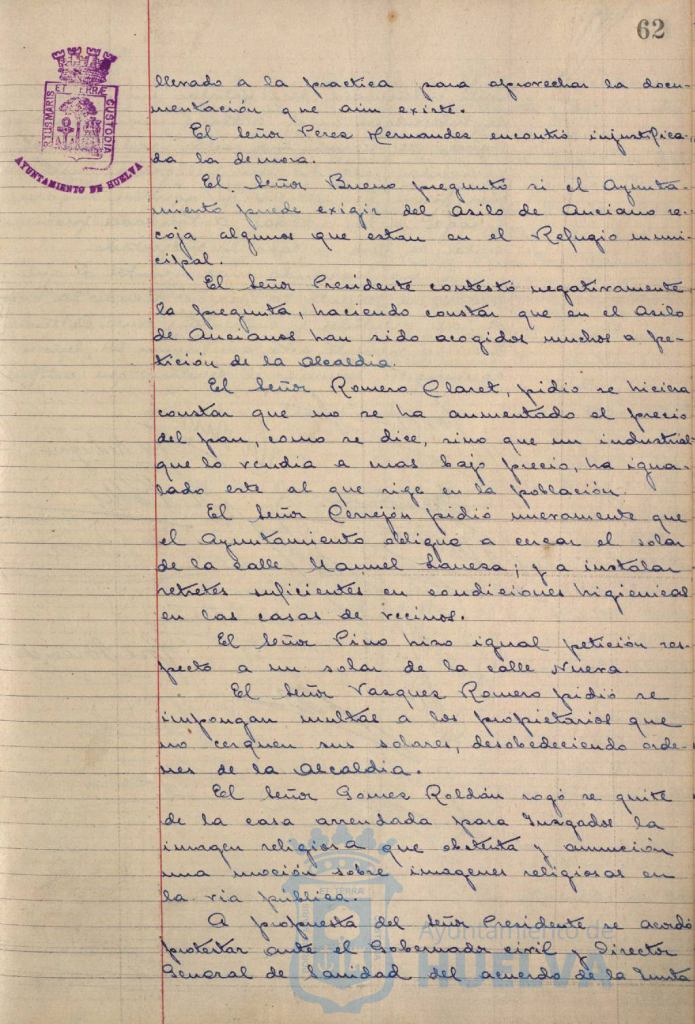 62
PORTUS MARIS ET TERRÆ CUSTODIA
AYUNTAMIENTO DE HUELVA
llevado a la practica para aprovechar la docu-
mentación que aun existe.
El Señor Perez Hernandez encontró injustifica-
da la demora.
El Señor Bueno preguntó si el Ayunta-
miento puede exigir del Asilo de Anciano re-
coja algunos que estan en el Refugio muni-
cipal.
El Señor Presidente contestó negativamente
la pregunta, haciendo constar que en el Asilo
de Ancianos han sido acogidos muchos a pe-
tición de la Alcaldia.
El Señor Romero Claret, pidió se hiciera
constar que no se ha aumentado el precio
del pan, como se dice, sino que un industrial
que lo vendia a mas bajo precio, ha igua-
lado este al que rige en la población.
El Señor Cerrejón pidió nuevamente que
el Ayuntamiento obligue a cercar el solar
de la calle Manuel; y a instalar
retretes suficientes en condiciones higienicas
en las casas de vecinos.
El Señor Pino hizo igual petición res-
pecto a un solar de la calle Nueva.
El Señor Vazquez Romero pidió se
impongan multas a los propietarios que
no cerquen sus solares, desobedeciendo orde-
nes de la Alcaldia.
El Señor Gomez Roldán rogó se quite
de la casa arrendada para Juzgados la
imagen religiosa que obstenta y anunción
una moción sobre imagenes religiosas en
la via publica.
A propuesta del Señor Presidente se acordó
protestar ante el Gobernador civil y Director
General de Sanidad del acuerdo de la Junta
ET TERRÆ
Ayuntamiento de
HUELVA